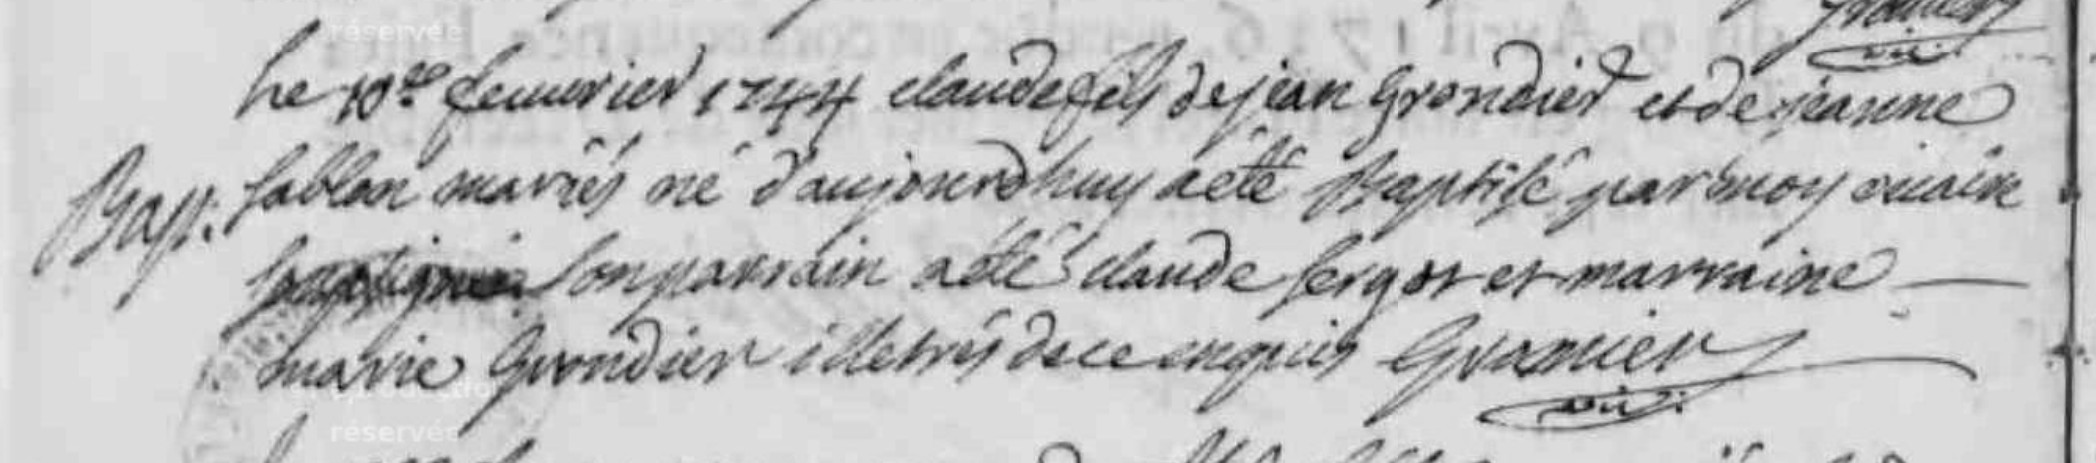 réservée
Granier
vic.
Le 10.e feuvrier 1744 claude fils de jean Grondier et de jeanne
Bap. sablon mariés né d'aujourdhuy a été Baptisé par moy vicaire
son parrain a été claude sergot et marraine
marie Grondier illetrés de ce enquis Granier
vic.
réservée